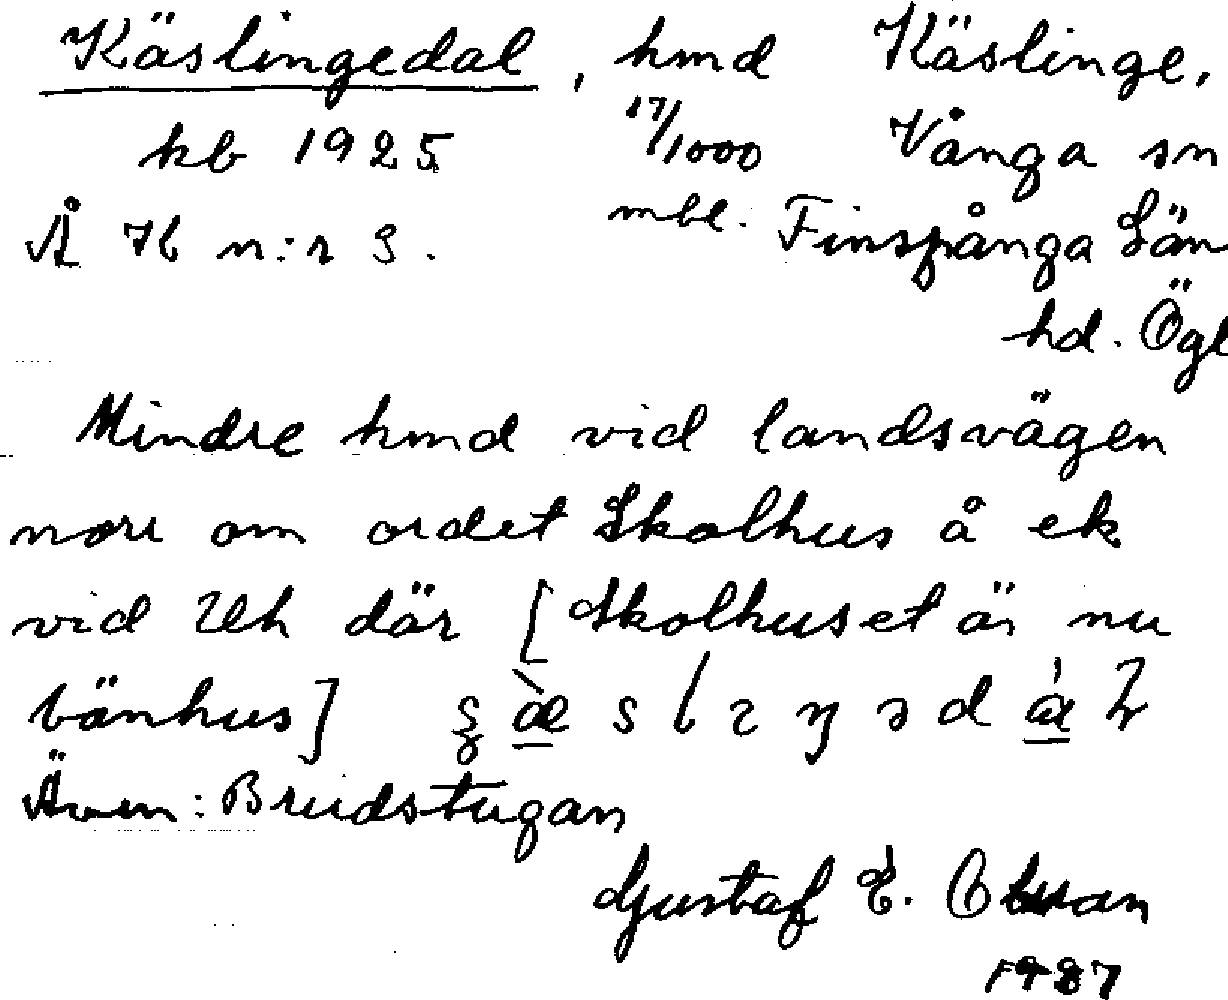 Käslingedal, hmd Käslinge,
kb 1925 17/1000 Vånga sn
Å 76 n:r 3. mtl. Finspånga Län
hd. Ögl
Mindre hmd vid landsvägen
norr om ordet Skolhus å ek
vid Uh där [Skolhuset är nu
bönhus]
Även: Brudstugan
Gustaf E. Olsson